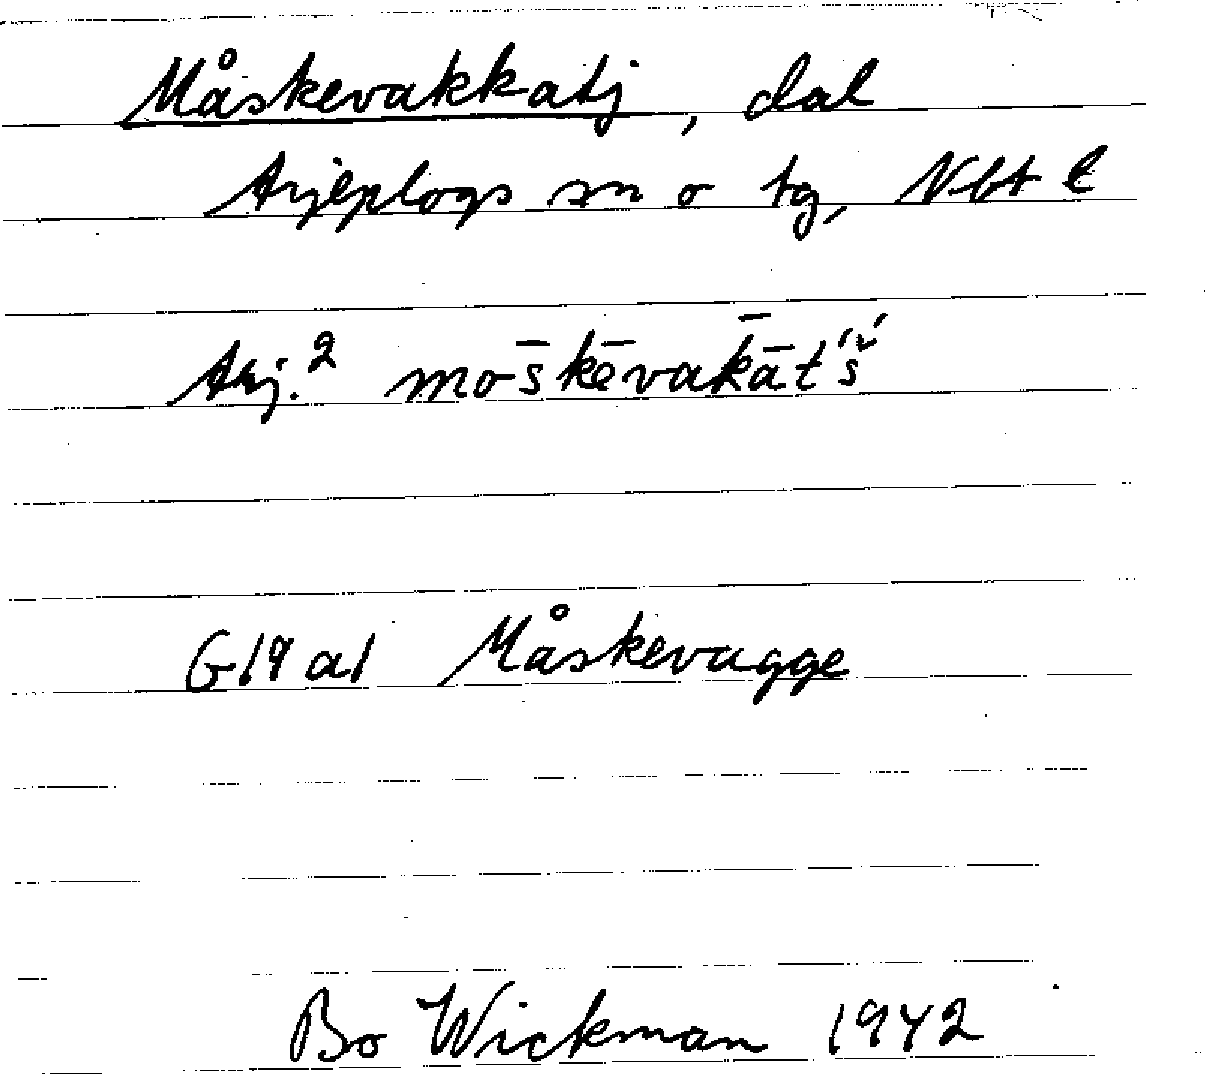 Måskevakkatj, dal
Arjeplogs sn o tg, Nbt l
Arj.² mos̄kēvak̄āt́š́
G19a1 Måskevagge
Bo Wickman 1942